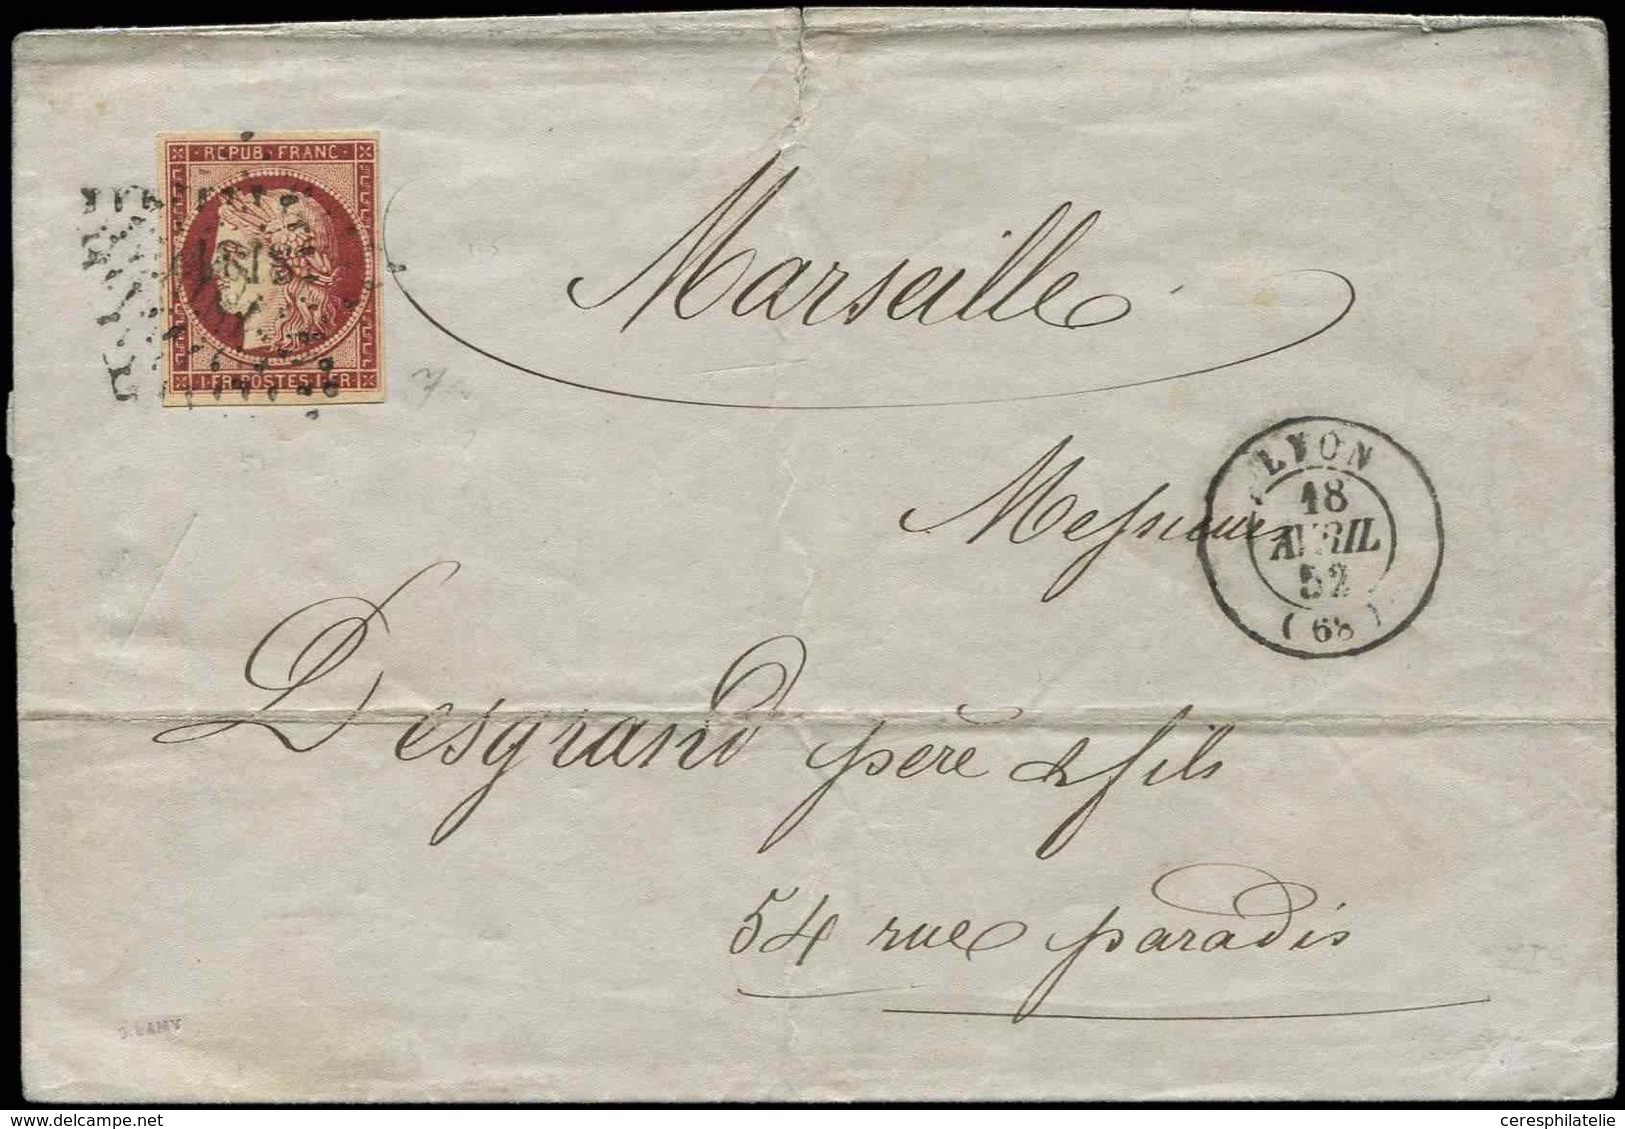 REPUB. FRANC
1. FR. POSTES 1. FR
Marseille
LYON
18
AVRIL
52
(68)
Messieurs
Desgrand père & fils
54 rue paradis
© DELCAMPE.net / JAMY
ceresphilatelie